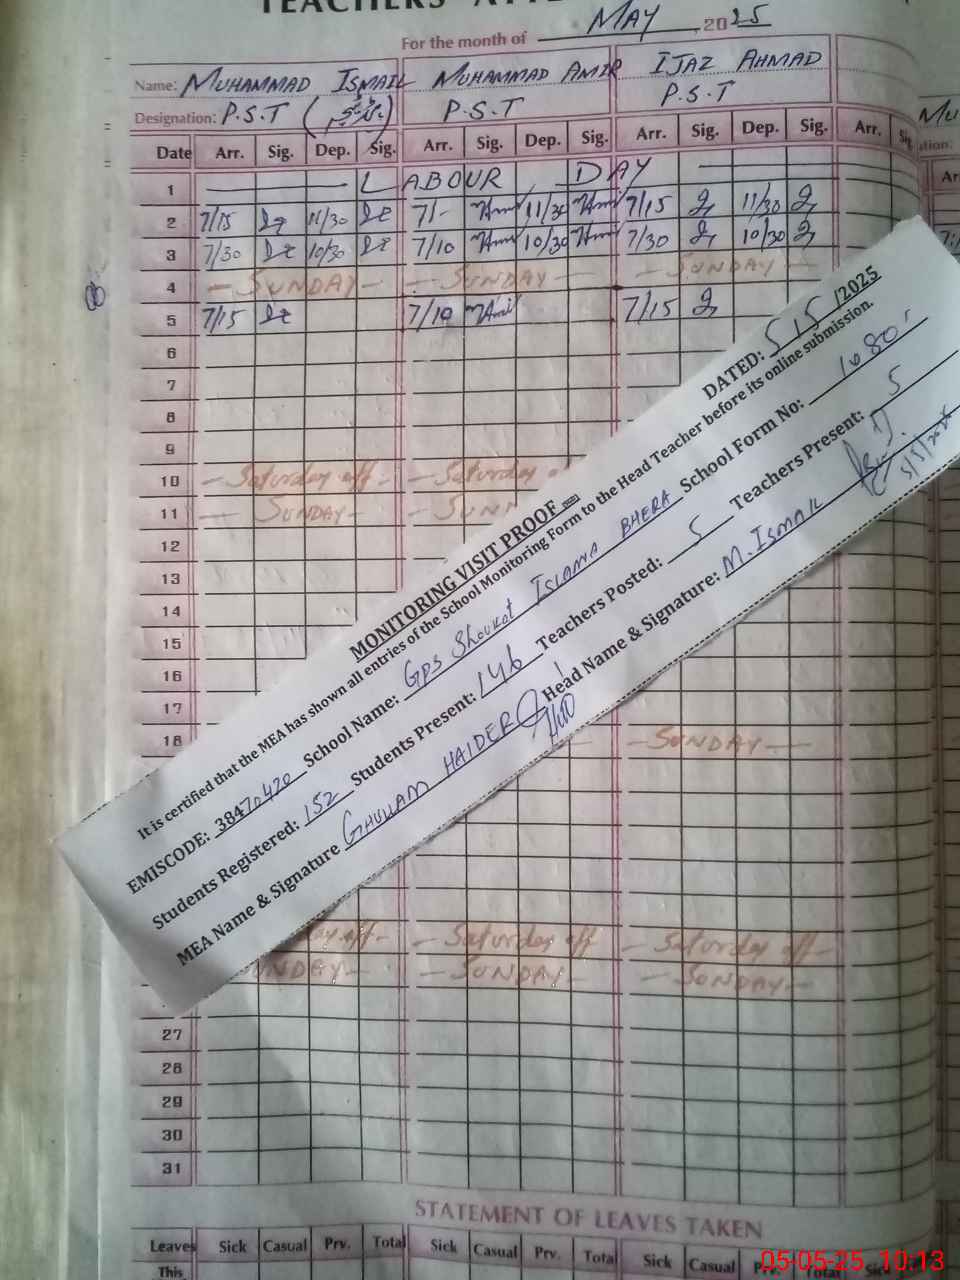 TEACHERS' ATTE
For the month of MAY, 2025
Name: MUHAMMAD ISMAIL MUHAMMAD AMIR IJAZ AHMAD
Designation: P.S.T ( ) P.S.T P.S.T
MU
tion:
Date Arr. Sig. Dep. Sig. Arr. Sig. Dep. Sig. Arr. Sig. Dep. Sig. Arr. Sig. Ar
1 LABOUR DAY
2 7/15 11/30 7/- 11/30 7/15 11/30
3 7/30 10/30 7/10 10/30 7/30 10/30
4 - SUNDAY - - SUNDAY - - SUNDAY -
5 7/15 7/10 7/15
6
7
8
9
10 - Saturday off - - Saturday o
11 - SUNDAY - - SUNN
12
13
14
15
16
17
18 - SUNDAY -
day off - - Saturday off - Saturday off -
UNDAY - - SUNDAY - - SUNDAY -
27
28
29
30
31
MONITORING VISIT PROOF
DATED: 5/5/2025
It is certified that the MEA has shown all entries of the School Monitoring Form to the Head Teacher before its online submission.
EMISCODE: 38470420 School Name: GPS Shoukat Islam BHERA School Form No: 1080
Students Registered: 152 Students Present: 146 Teachers Posted: 5 Teachers Present: 5
MEA Name & Signature GHULAM HAIDER Head Name & Signature: M. ISMAIL
5/5/2025
STATEMENT OF LEAVES TAKEN
Leaves Sick Casual Prv. Total Sick Casual Prv. Total Sick Casual Prv. Total Sick Casual
This
05-05-25, 10:13